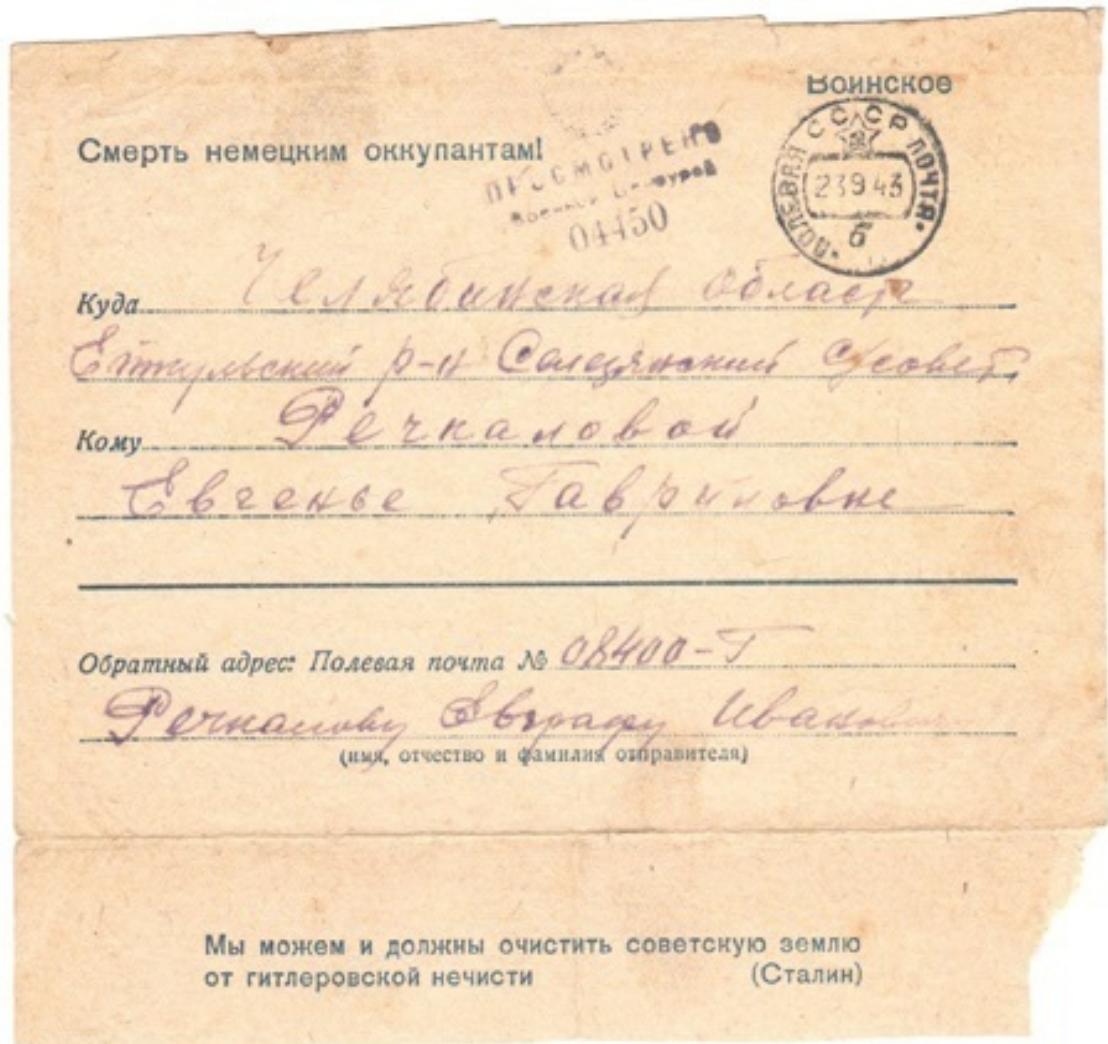 Воинское
Смерть немецким оккупантам!
ПРОСМОТРЕНО
Военной Цензурой
04450
ПОЛЕВАЯ СССР ПОЧТА
23 9 43
б
Куда Челябинская область
Еткульский р-н Селезянский с/совет
Кому Речкаловой
Евгенье Гавриловне
Обратный адрес: Полевая почта № 08400-Г
Речкалову Евграфу
(имя, отчество и фамилия отправителя)
Мы можем и должны очистить советскую землю
от гитлеровской нечисти (Сталин)